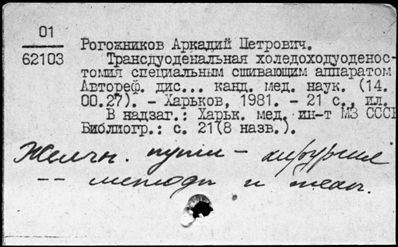 01
62103
Рогожников Аркадий Петрович.
Трансдуоденальная холедоходуоденос-
томия специальным сшивающим аппаратом
Автореф. дис... канд. мед. наук. (14.
00.27). - Харьков, 1981. - 21 с., ил.
В надзаг.: Харьк. мед. ин-т МЗ СССР
Библиогр.: с. 21(8 назв.).
Желчн. пути - хирургия
-- методы и техн.